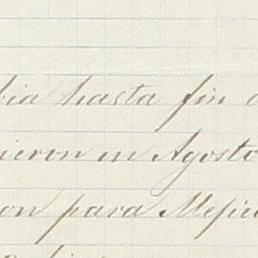 bia hasta fin
ieron en Agosto
on para Mejic